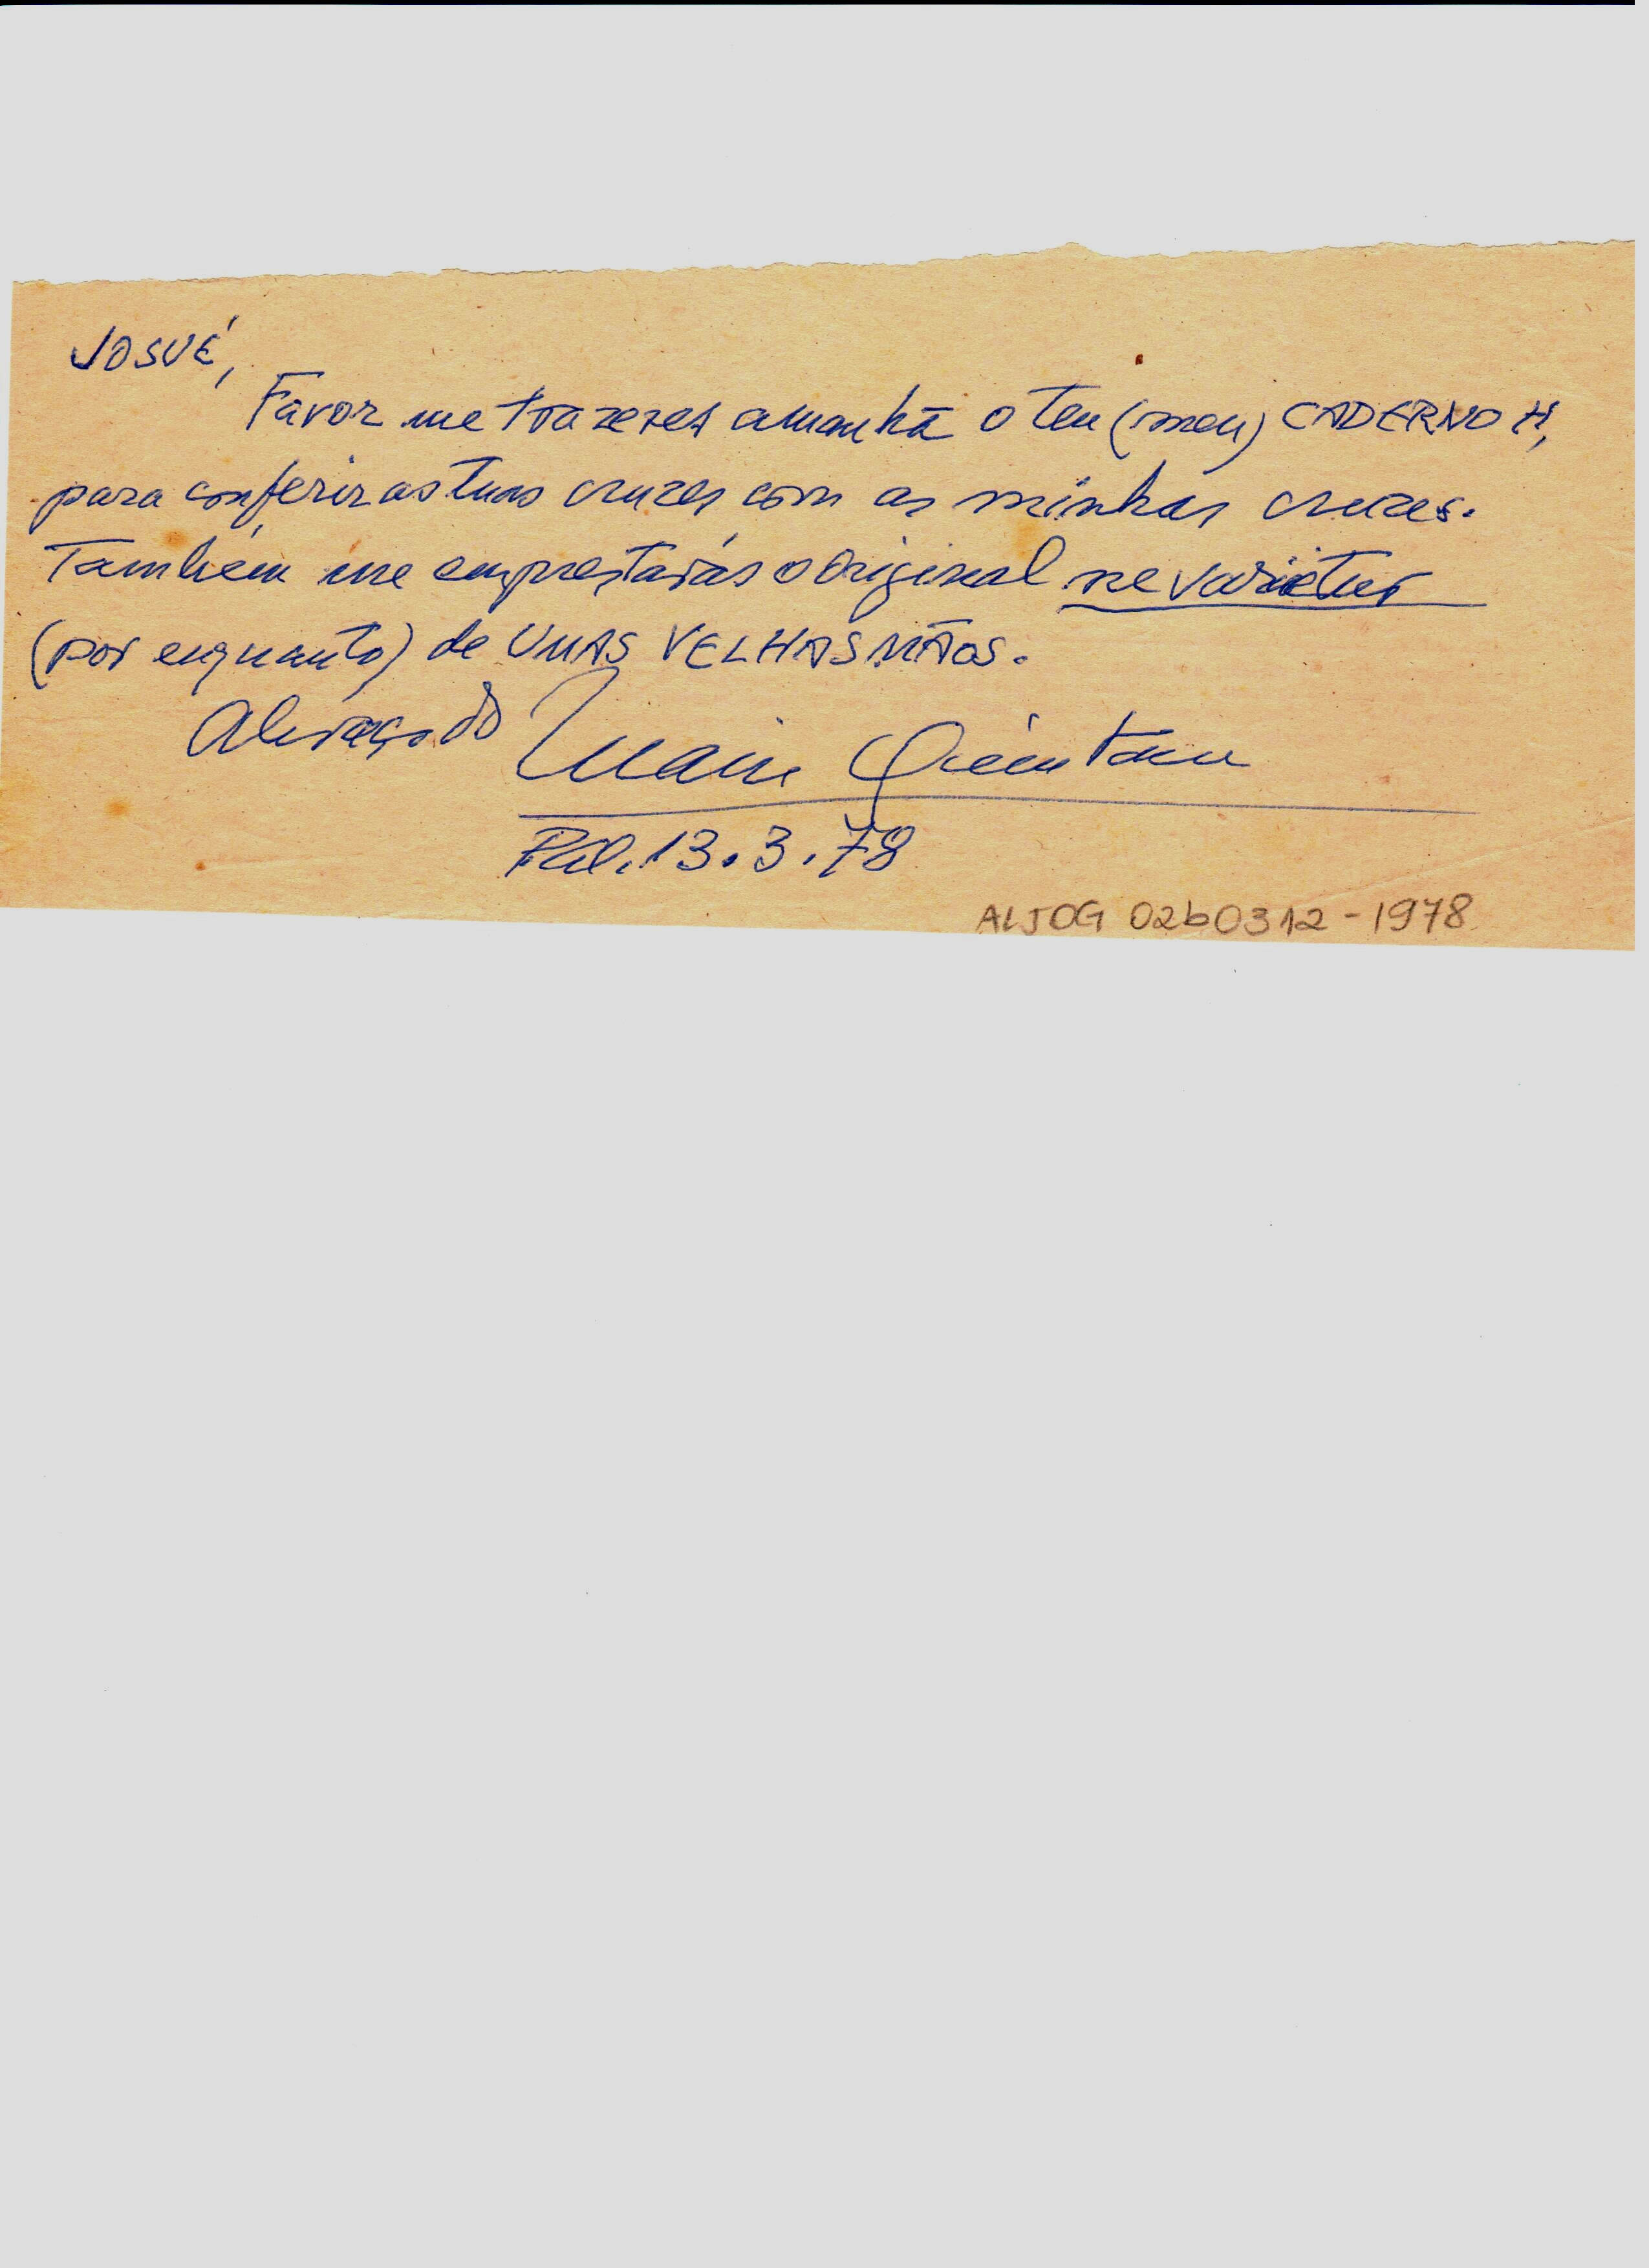 JOSUÉ,
Favor me trazeres amanhã o teu (meu) CADERNO H,
para conferir as tuas cruzes com as minhas cruzes.
Também me emprestarás o original ne varietur
(por enquanto) de UMAS VELHAS MÃOS.
Abraço do Mario Quintana
P.Al. 13.3.78
ALJOG 02b0312-1978